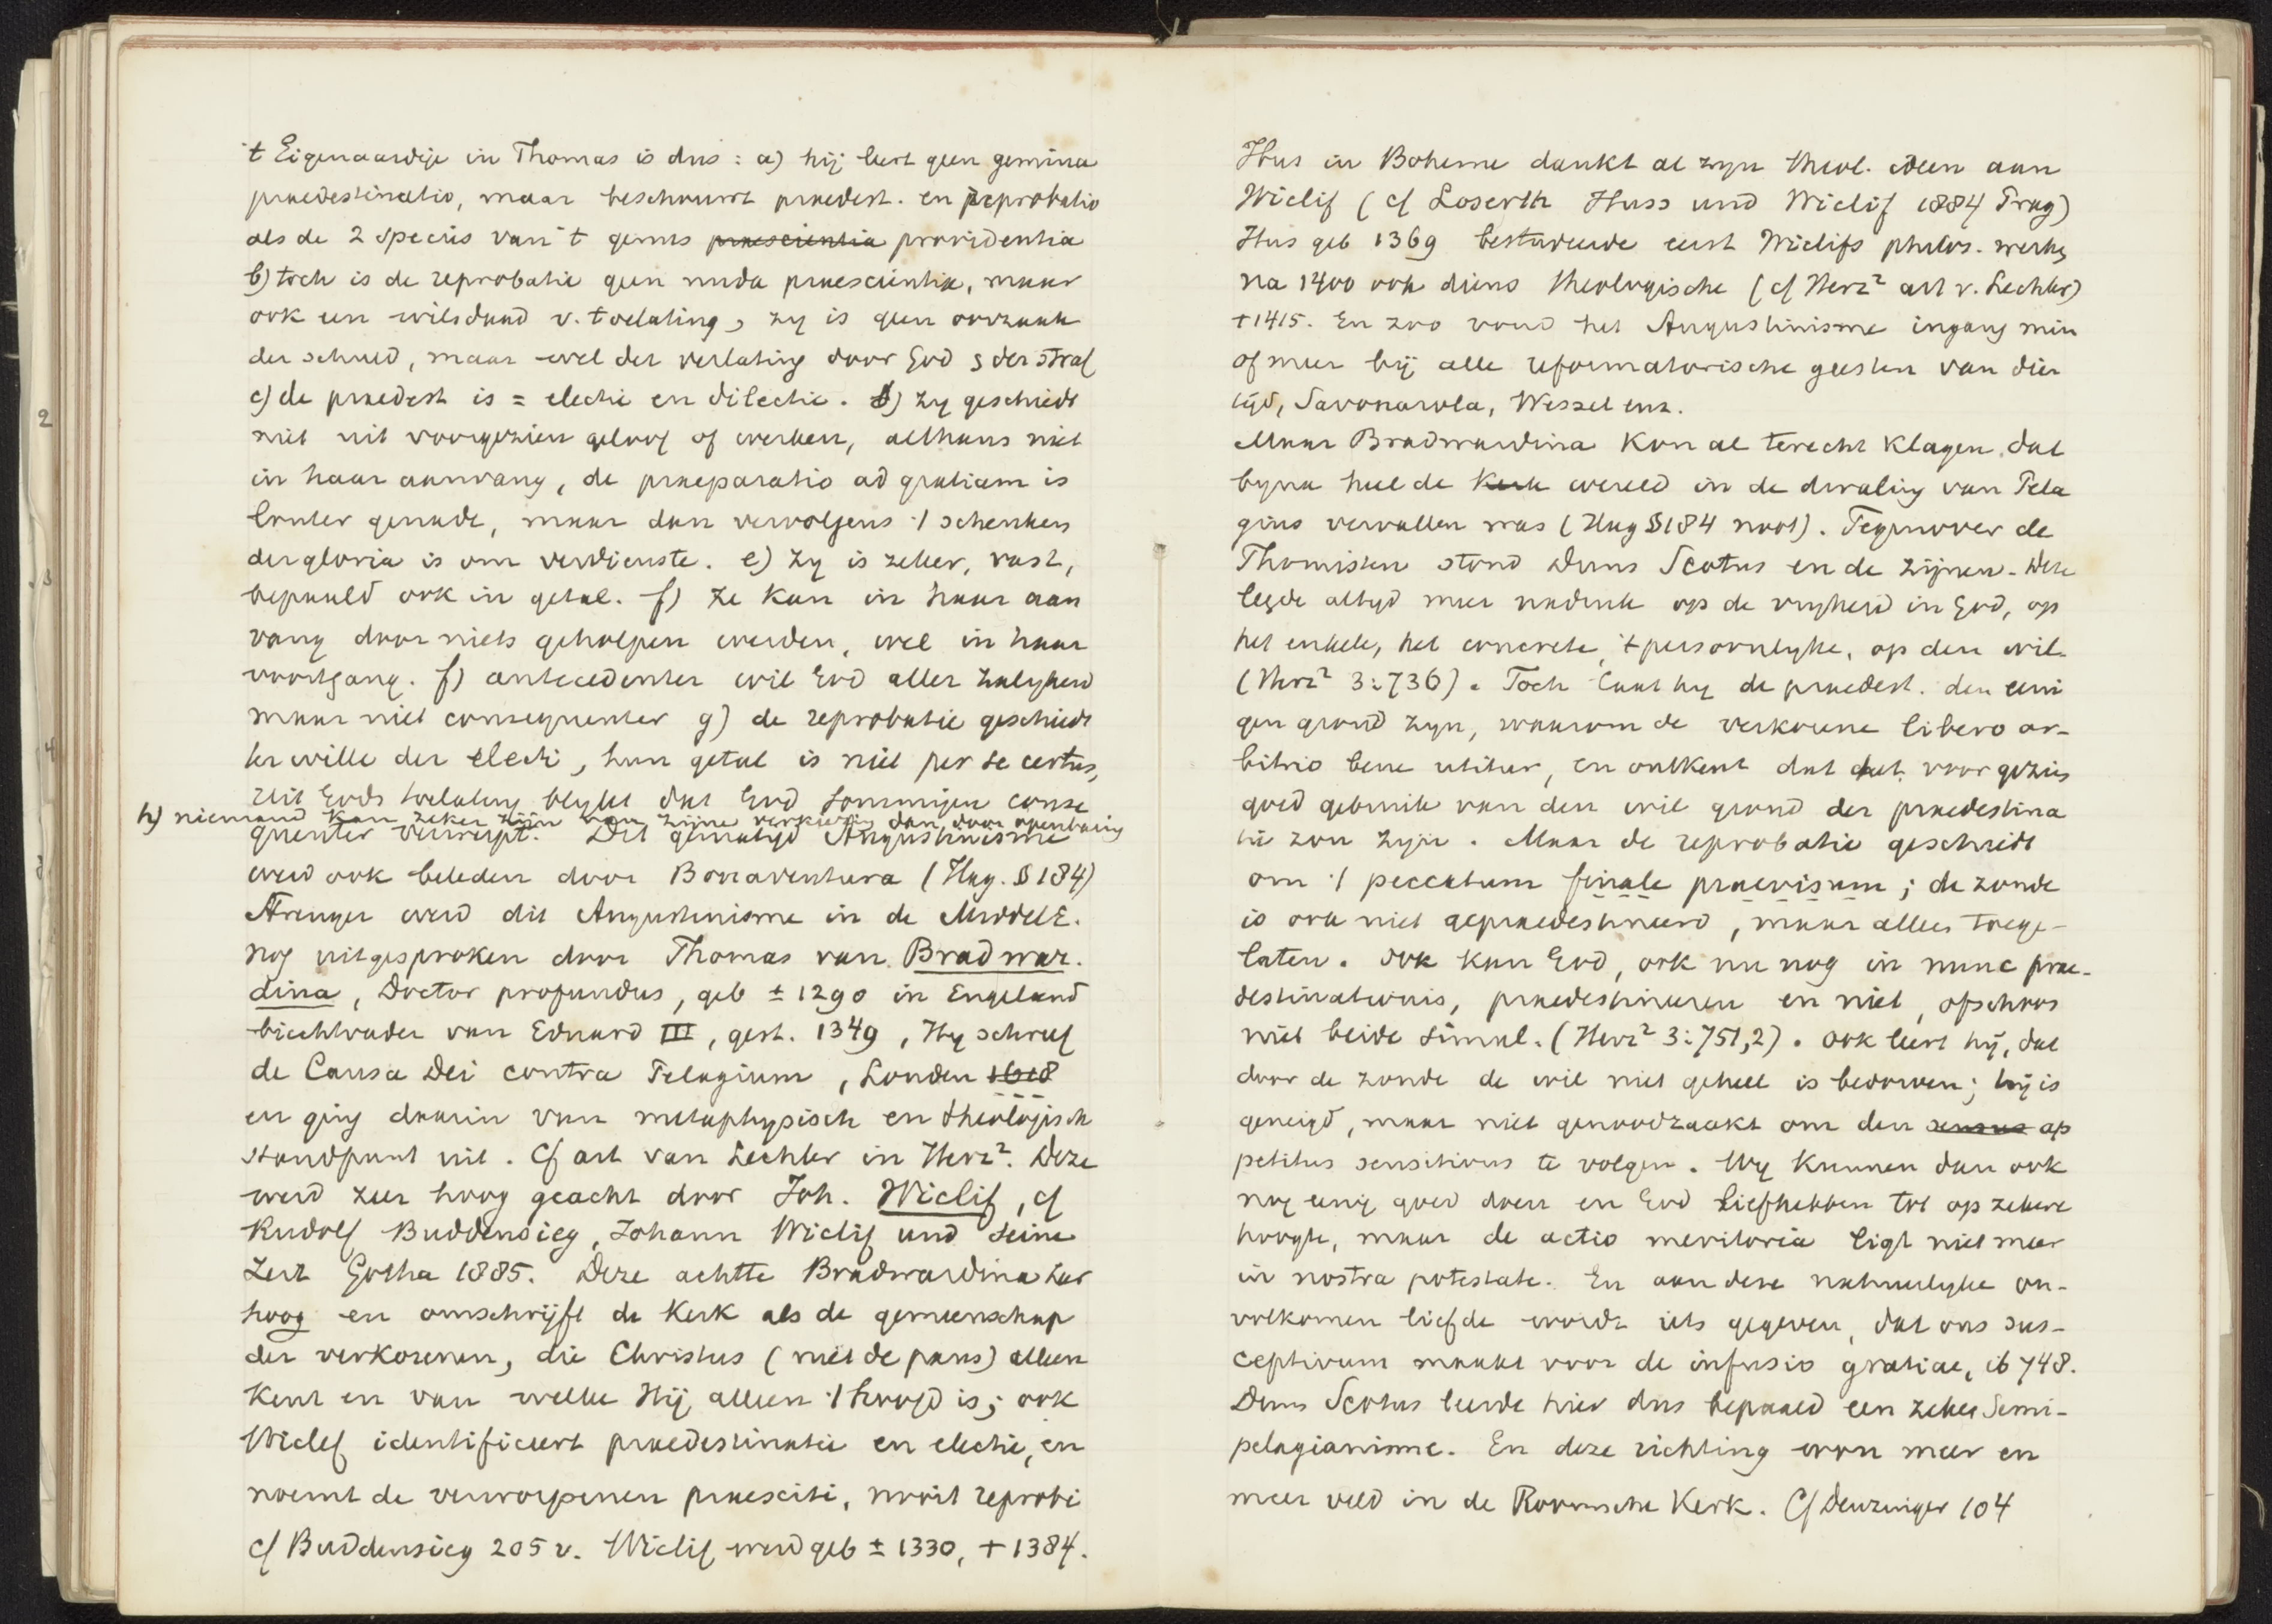 't Eigenaardige in Thomas is dus: a) hij leert geen gemina
praedestinatio, maar beschouwt praedest. en reprobatio
als de 2 species van 't genus praescientia providentia
b) toch is de reprobatie geen nuda praescientia, maar
ook een wilsdaad v. toelating, zy is geen oorzaak
der schuld, maar wel der verlating door God & der straf
c) de praedest is = electie en dilectie. d) zy geschiedt
niet uit voorgezien geloof of werken, althans niet
in haar aanvang, de praeparatio ad gratiam is
louter genade, maar dan vervolgens 't schenken
der gloria is om verdienste. e) Zy is zeker, vast,
bepaald ook in getal. f) Ze kan in haar aan
vang door niets geholpen werden, wel in haar
voortgang. f) antecedenter wil God aller zaligheid
maar niet consequenter g) de reprobatie geschiedt
ter wille der electi, hun getal is niet per se certus,
uit Gods toelating blykt dat God sommigen conse
h) niemand kan zeker zijn van zijne verkiezing dan door openbaring
quenter verwerpt. Dit gematigd Augustinisme
werd ook beleden door Bonaventura (Hag. § 184)
Strenger werd dit Augustinisme in de MiddelE.
nog uitgesproken door Thomas van Bradwar-
dina, Doctor profundus, geb ± 1290 in Engeland
biechtvader van Eduard III, gest. 1349, Hy schreef
de Causa Dei contra Pelagium, Londen 1618
en ging daarin van metaphysisch en theologisch
standpunt uit. Cf art van Lechler in Herz². Deze
werd zeer hoog geacht door Joh. Wiclif, cf
Rudolf Buddensieg, Johann Wiclif und seine
Zeit Gotha 1885. Deze achtte Bradwardina zeer
hoog en omschrijft de Kerk als de gemeenschap
der verkorenen, die Christus (niet de paus) alleen
kent en van welke Hij alleen 't hoofd is; ook
Wiclef identificeert praedestinatie en electie, en
noemt de verworpenen praesciti, nooit reprobi
cf Buddensieg 205 v. Wiclif werd geb ± 1330, + 1384.
Hus in Boheme dankt al zyn theol. ideen aan
Wiclif (cf Loserth Huss und Wiclif 1884 Prag)
Hus geb 1369 bestudeerde eerst Wiclifs philos. werken
na 1400 ook diens theologische (cf Herz² art v. Lechler)
+ 1415. En zoo vond het Augustinisme ingang min
of meer bij alle reformatorische geesten van dien
tijd, Savonarola, Wessel enz.
Maar Bradwardina kon al terecht klagen dat
byna heel de kerk wereld in de dwaling van Pela
gius vervallen was (Hag § 184 noot). Tegenover de
Thomisten stond Duns Scotus en de zijnen. Deze
legde altyd meer nadruk op de vryheid in God, op
het enkele, het concrete, 't persoonlyke, op den wil.
(Herz² 3:736). Toch laat hy de praedest. den eeni
gen grond zyn, waarom de verkorene libero ar-
bitrio bene utitur, en ontkent dat het voorgezien
goed gebruik van den wil grond der praedestina
tie zou zijn. Maar de reprobatie geschiedt
om 't peccatum finale praevisum; de zonde
is ook niet gepraedestineerd, maar alleen toege-
laten. Ook kan God, ook nu nog in nunc prae-
destinationis, praedestineeren en niet, ofschoon
niet beide simul. (Herz² 3:751,2). Ook leert hij, dat
door de zonde de wil niet geheel is bedorven; hij is
geneigd, maar niet genoodzaakt om den sensus ap
petitus sensitivus te volgen. Wy kunnen dan ook
nog eenig goed doen en God liefhebben tot op zekere
hoogte, maar de actio meritoria ligt niet meer
in nostra potestate. En aan deze natuurlyke on-
volkomen liefde wordt iets gegeven, dat ons sus-
ceptivum maakt voor de infusio gratiae, ib 748.
Duns Scotus leerde hier dus bepaald een zeker Semi-
pelagianisme. En deze richting won meer en
meer veld in de Roomsche Kerk. Cf Denzinger 104